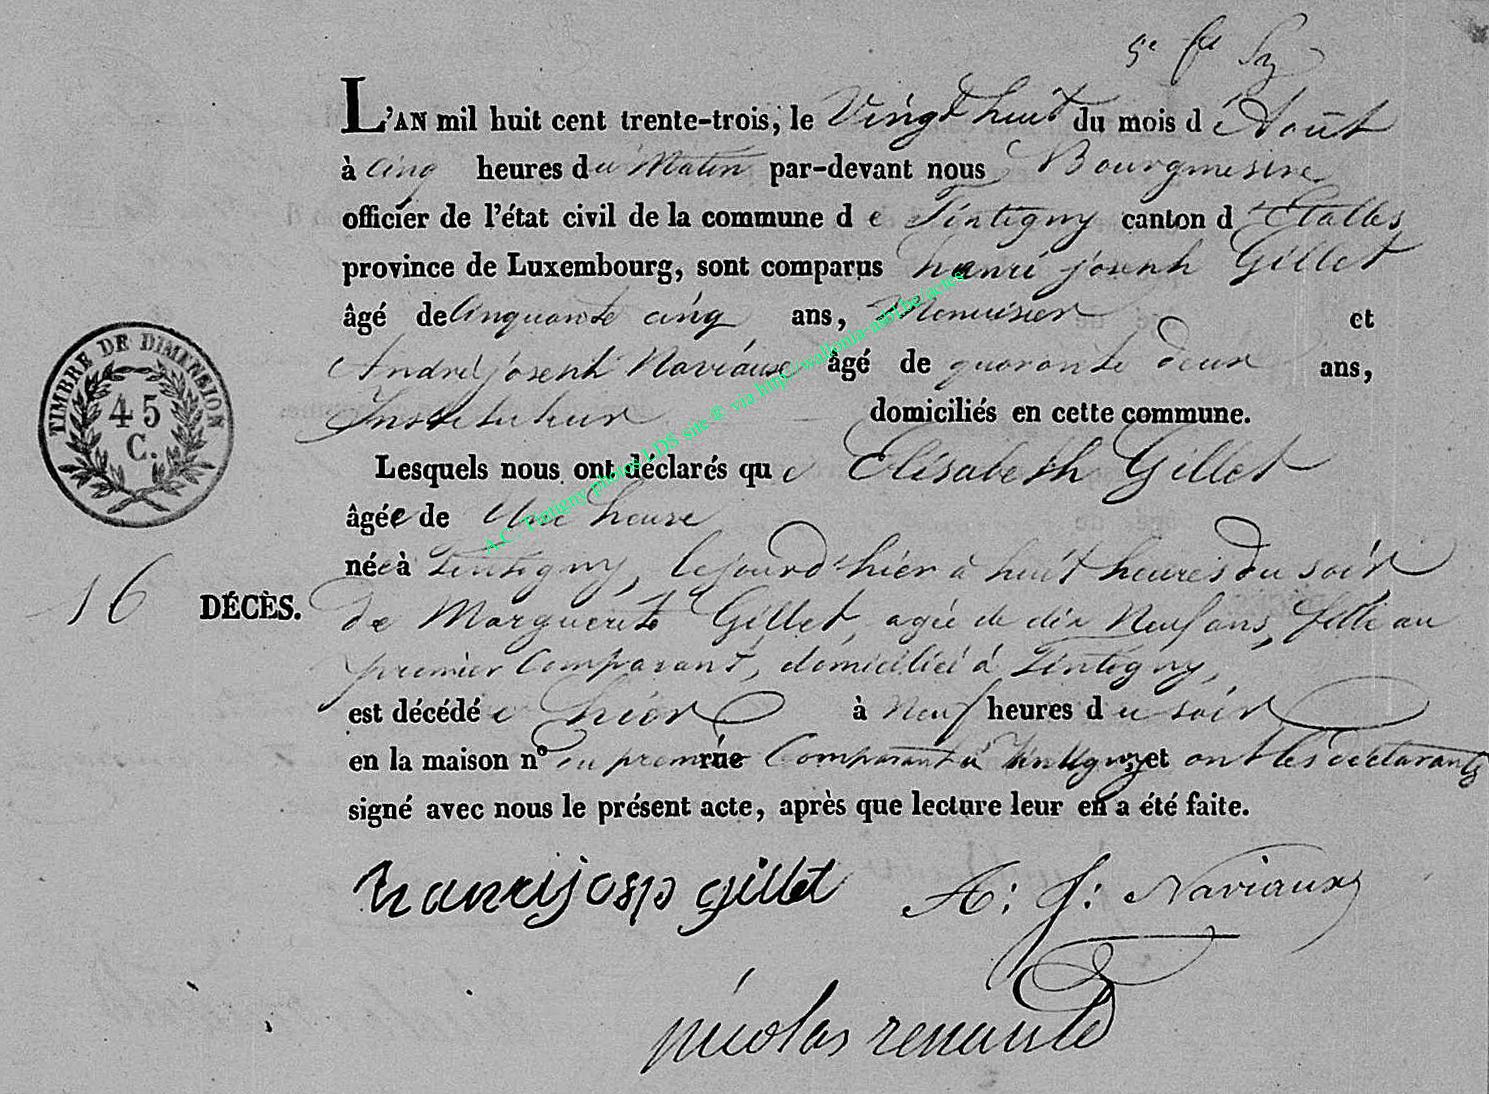 5e fet
L'AN mil huit cent trente-trois, le Vingt huit du mois d'Août
à cinq heures du Matin par-devant nous Bourgmestre
officier de l'état civil de la commune de Tintigny canton d'Etalles
province de Luxembourg, sont comparus henri joseph Gillet
âgé de Cinquante cinq ans, Menuisier et
André joseph Naviaux âgé de quarante deux ans,
Instituteur domiciliés en cette commune.
Lesquels nous ont déclarés que Elisabeth Gillet
âgée de Une heure
née à Tintigny, le jour d'hier à huit heures du soir
16 DÉCÈS. de Marguerite Gillet, agée de dix Neuf ans, fille au
premier Comparant, domiciliée à Tintigny,
est décédée hier à Neuf heures du soir
en la maison no du premier rue Comparant à Tintigny, et ont les déclarants
signé avec nous le présent acte, après que lecture leur en a été faite.
hanrij osp gillet A: J: Naviaux
nicolas renauld
TIMBRE DE DIMENSION
45
C.
A.C. Tintigny photos LDS snc ® via http://wallonia-asbl.be/actes